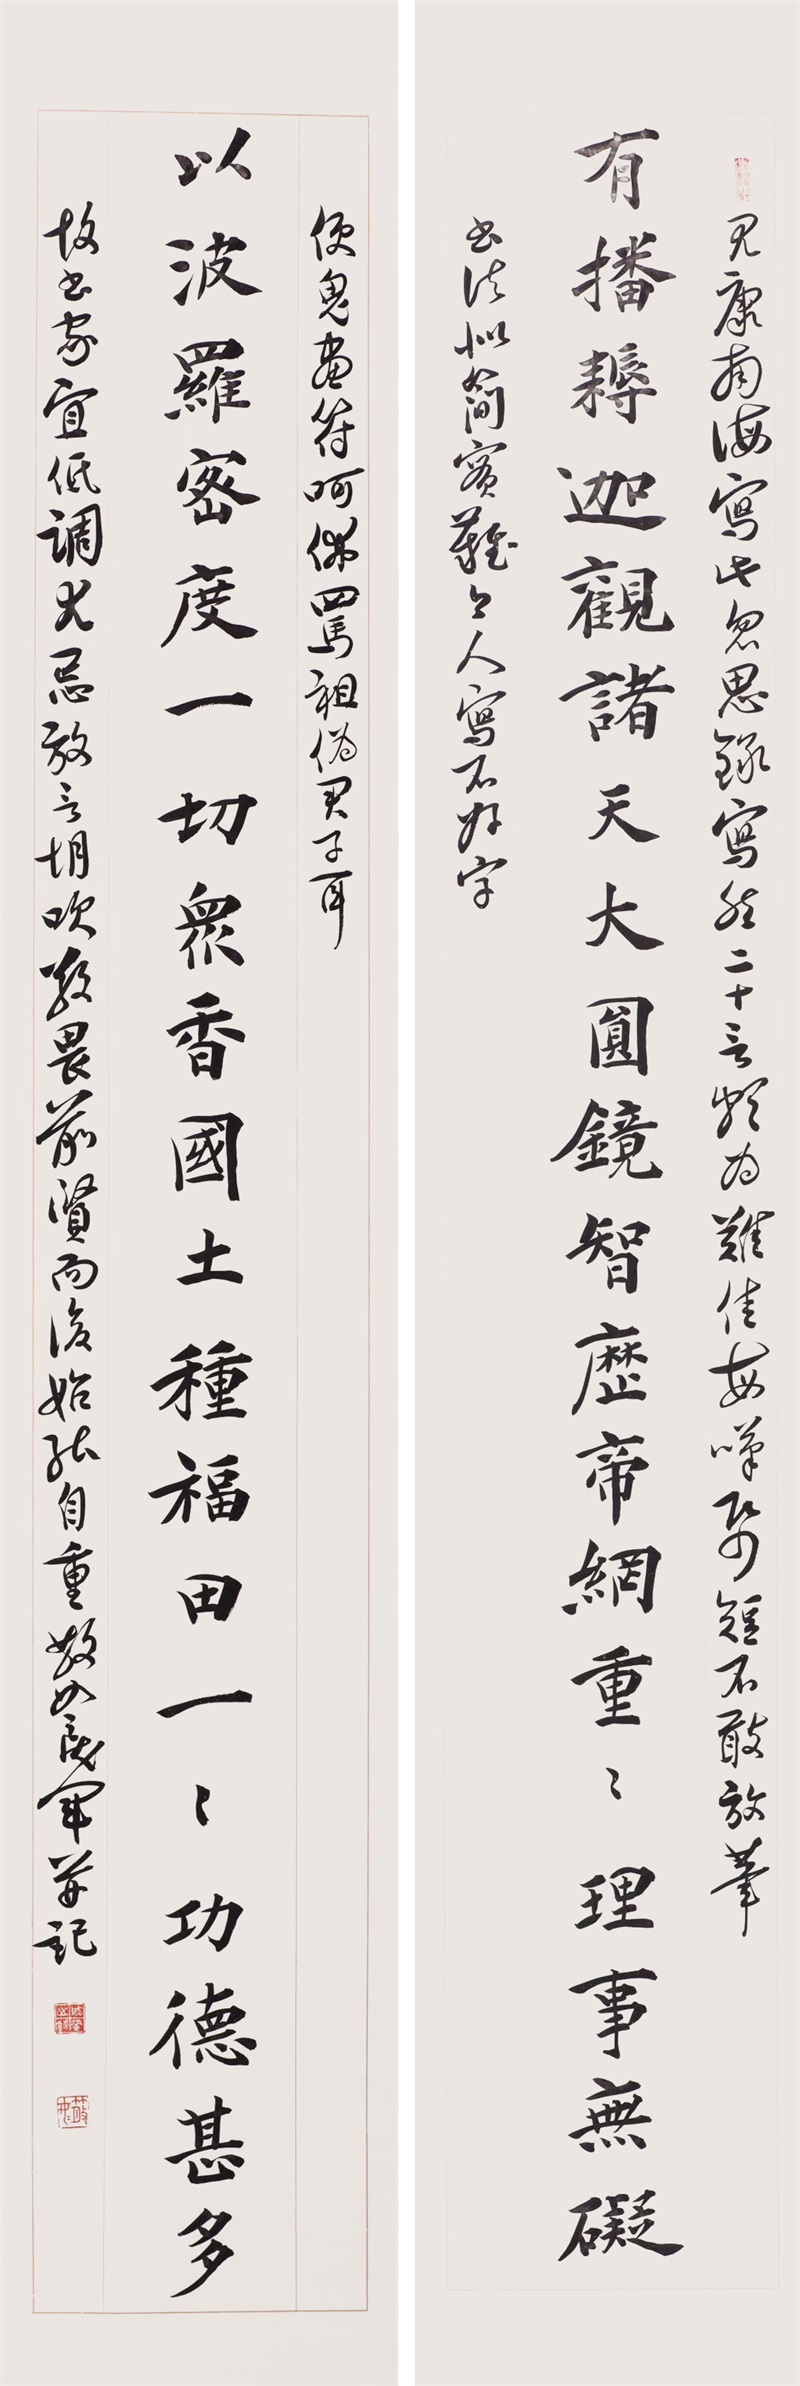 有播耨迦觀諸天大圓鏡智歷帝網重〻理事無礙
以波羅密度一切衆香國土種福田一〻功德甚多
見康南海寫此忽思錄寫然二十言頗為難佳每嘆限短不敢放筆
書法似簡實難今人寫不好字
便鬼畫符呵佛罵祖偽君子耳
故書家宜低調尤忌放言胡吹敬畏前賢而後始能自重